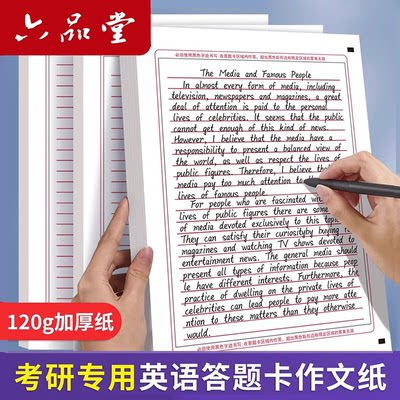 六品堂
必须使用黑色字迹书写·在答题卡区域内作答，超出黑色矩形边框限定区域的答案无效
The Media and Famous People
In almost every form of media, including
television, newspapers and magazines, a great
deal of attention is paid to the personal
lives of celebrities. It seems that the public
cannot get enough of this kind of news.
However, I believe that the media have a
responsibility to present a balanced view of
the world, as well as respect the lives of
public figures. Therefore, I believe the
media pay too much attention to the
lives of famous people.
For people who are fascinated with
lives of public figures there are some
of media devoted exclusively to this topic
They can satisfy their curiosity by buying
magazines and watching TV shows devoted to
entertainment news. The general media should
present all types of information because peop
le have different interests. Furthermore, the
practice of dwelling on the private lives of
celebrities can lead people to pay more atte
ntion to these matters than they otherwise
would.
120g加厚纸
考研专用英语答题卡作文纸